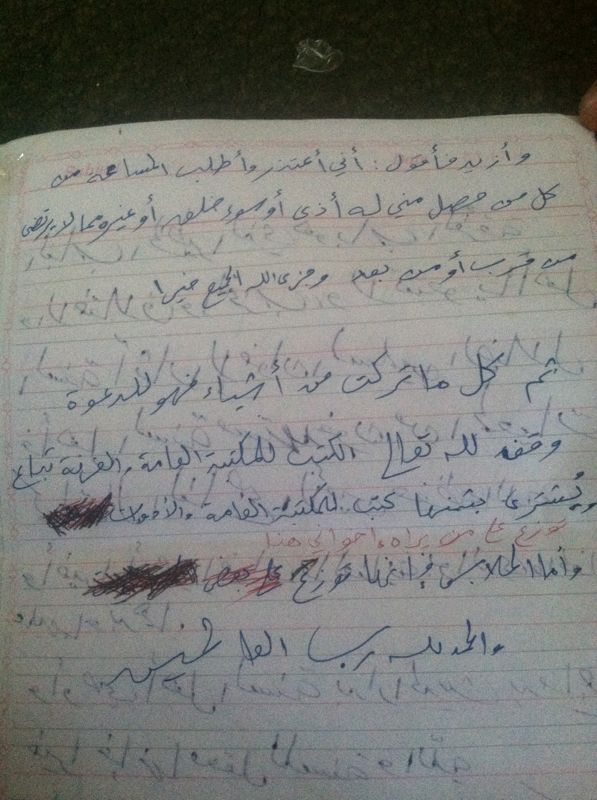 وأزيد فأقول: أني أعتذر وأطلب المسامحة من
كل من حصل مني له أذى أو سوء خلق أو غيره مما لا يرتضى
من قرب أو من بعد وجزى الله الجميع خيرا
ثم كل ما تركت من أشياء فهو للدعوة
وقف لله تعالى الكتب للمكتبة العامة والغرفة تباع
ويُشترى بثمنها كتب للمكتبة العامة والأدوات
توزع على من يراه إخواني هنا
وأما الملابس فإنها توزع على بعض
والحمد لله رب العالمين